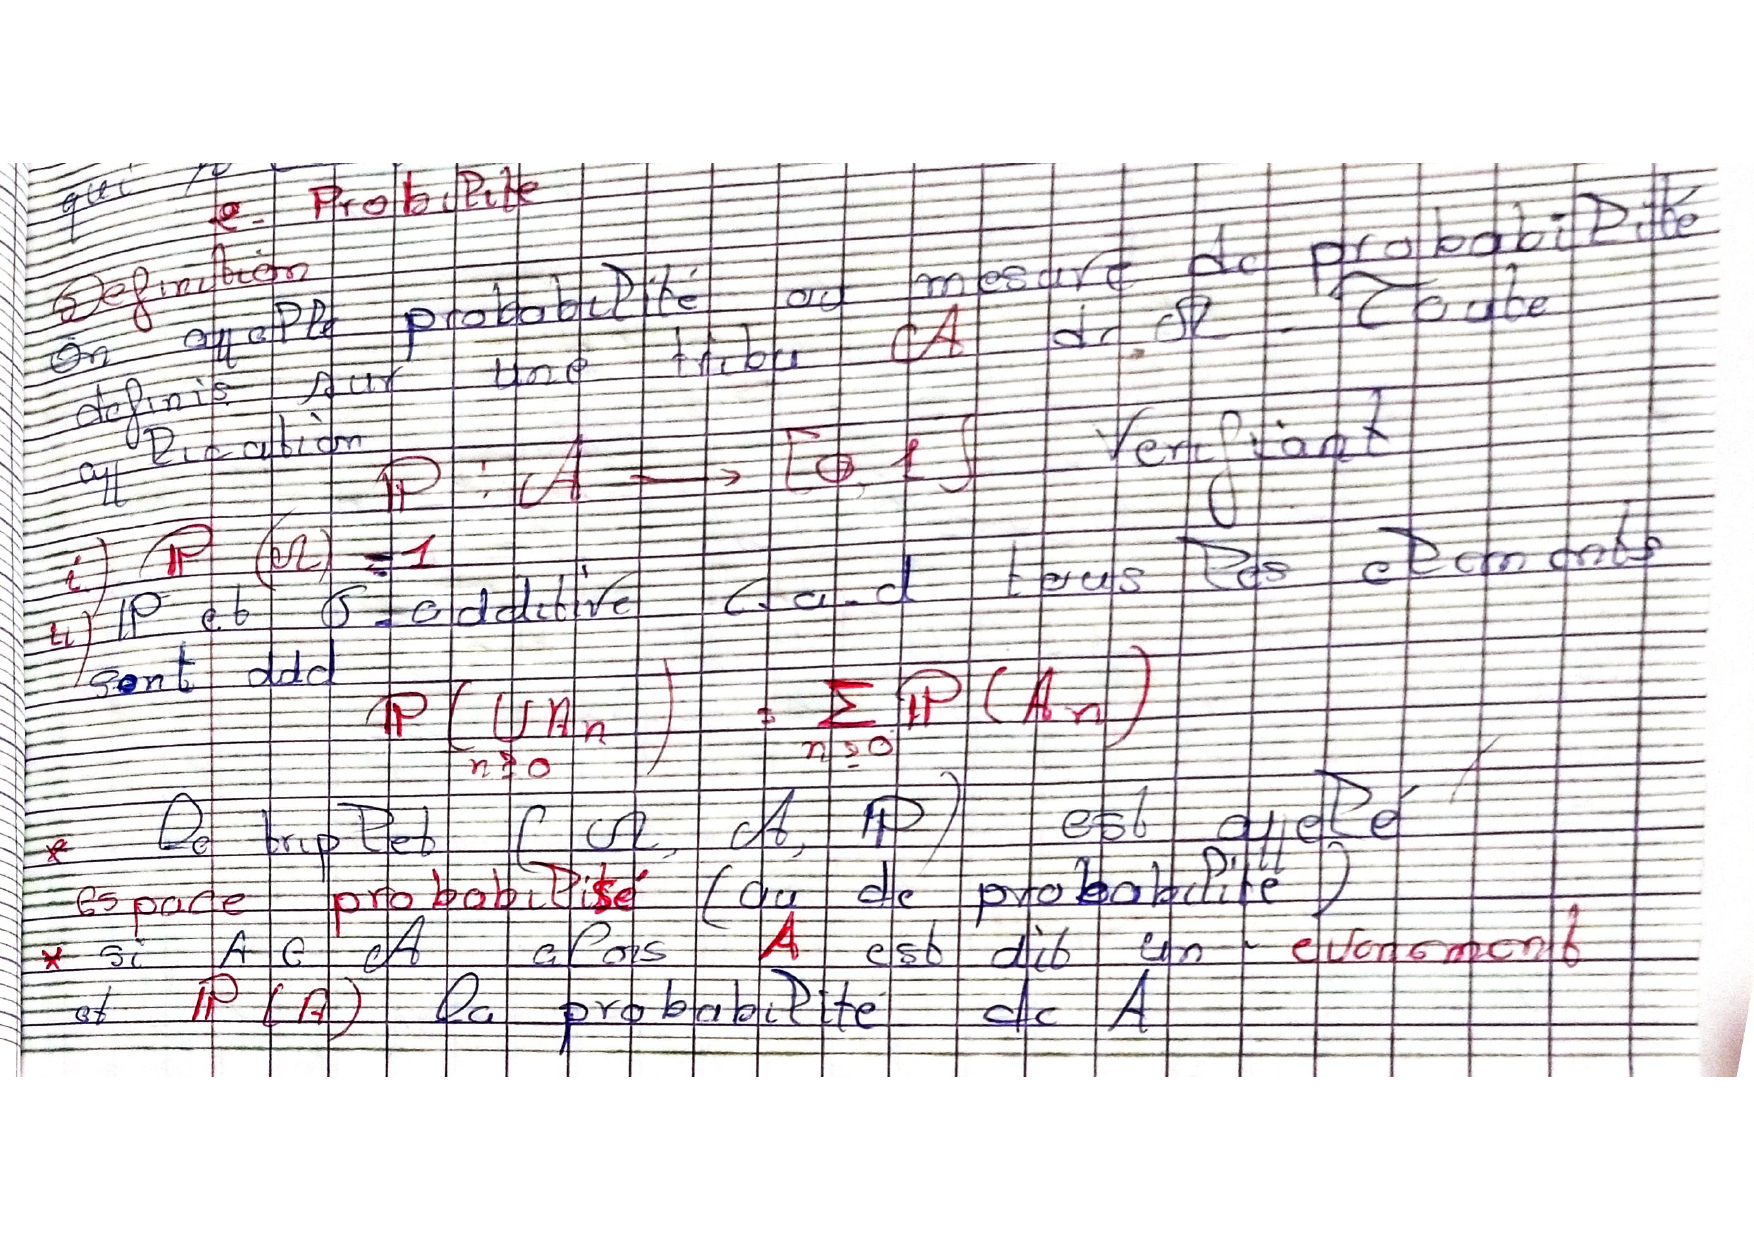 qui
e. Probilite
Definition
On appelle probabilité ou mesure de probabilité
definis sur une tribu A de Ω. Toute
application
ℙ : A → [0, 1] Verifiant
i) ℙ (Ω) = 1
ii) ℙ et σ-additive c.a.d tous les elements
sont ddd
ℙ ( ∪ An ) = Σ ℙ (An)
n≥0 n≥0
* Le triplet (Ω, A, ℙ) est appelé
espace probabilisé (ou de probabilité)
* si A ∈ A alors A est dit un evenement
et ℙ (A) la probabilite de A